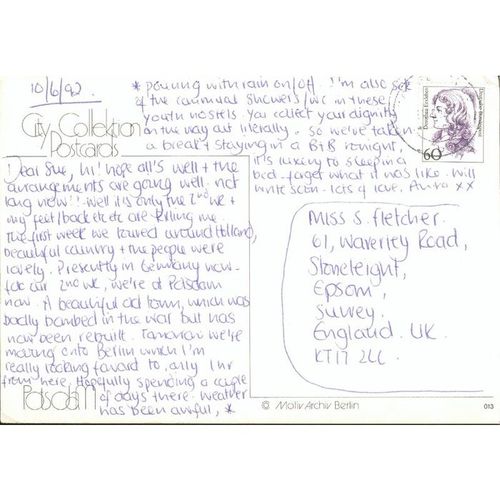 10/6/92
City Collection
Postcards
Dear Sue, hi! hope all's well + the
arrangements are going well, not
long now!! Well it's only the 2nd wk +
my feet/back etc etc are killing me.
The first week we toured around Holland,
beautiful country + the people were
lovely. Presently in Germany now-
for our 2nd wk, we're at Potsdam
now. A beautiful old town, which was
badly bombed in the war but has
now been rebuilt. Tomorrow we're
moving onto Berlin which I'm
really looking foward to, only 1 hr
from here. Hopefully spending a couple
of days there. Weather
has been awful, *
Potsdam
* pouring with rain on/off. I'm also sick
of the communal showers/wc in these
youth hostels. You collect your dignity
on the way out literally. So we've taken
a break + staying in a B+B tonight,
it's luxury to sleeping in a
bed - forget what it was like. Will
write soon - lots of love,
xx
Deutsche Bundespost
60
Miss S. Fletcher.
61, Waverley Road,
Stoneleight,
Epsom,
Surrey.
England. UK.
KT17 2LL.
© Motiv Archiv Berlin
013